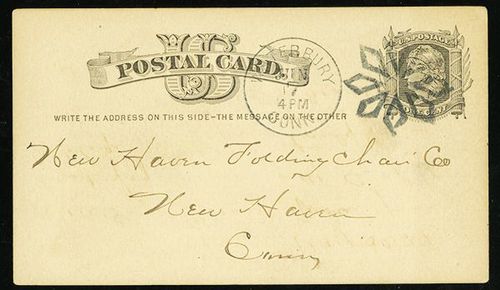 US
POSTAL CARD.
U.S. POSTAGE
WATERBURY
JUN
17
4 PM
CONN.
ONE CENT
WRITE THE ADDRESS ON THIS SIDE-THE MESSAGE ON THE OTHER
New Haven Folding Chair Co
New Haven
Conn